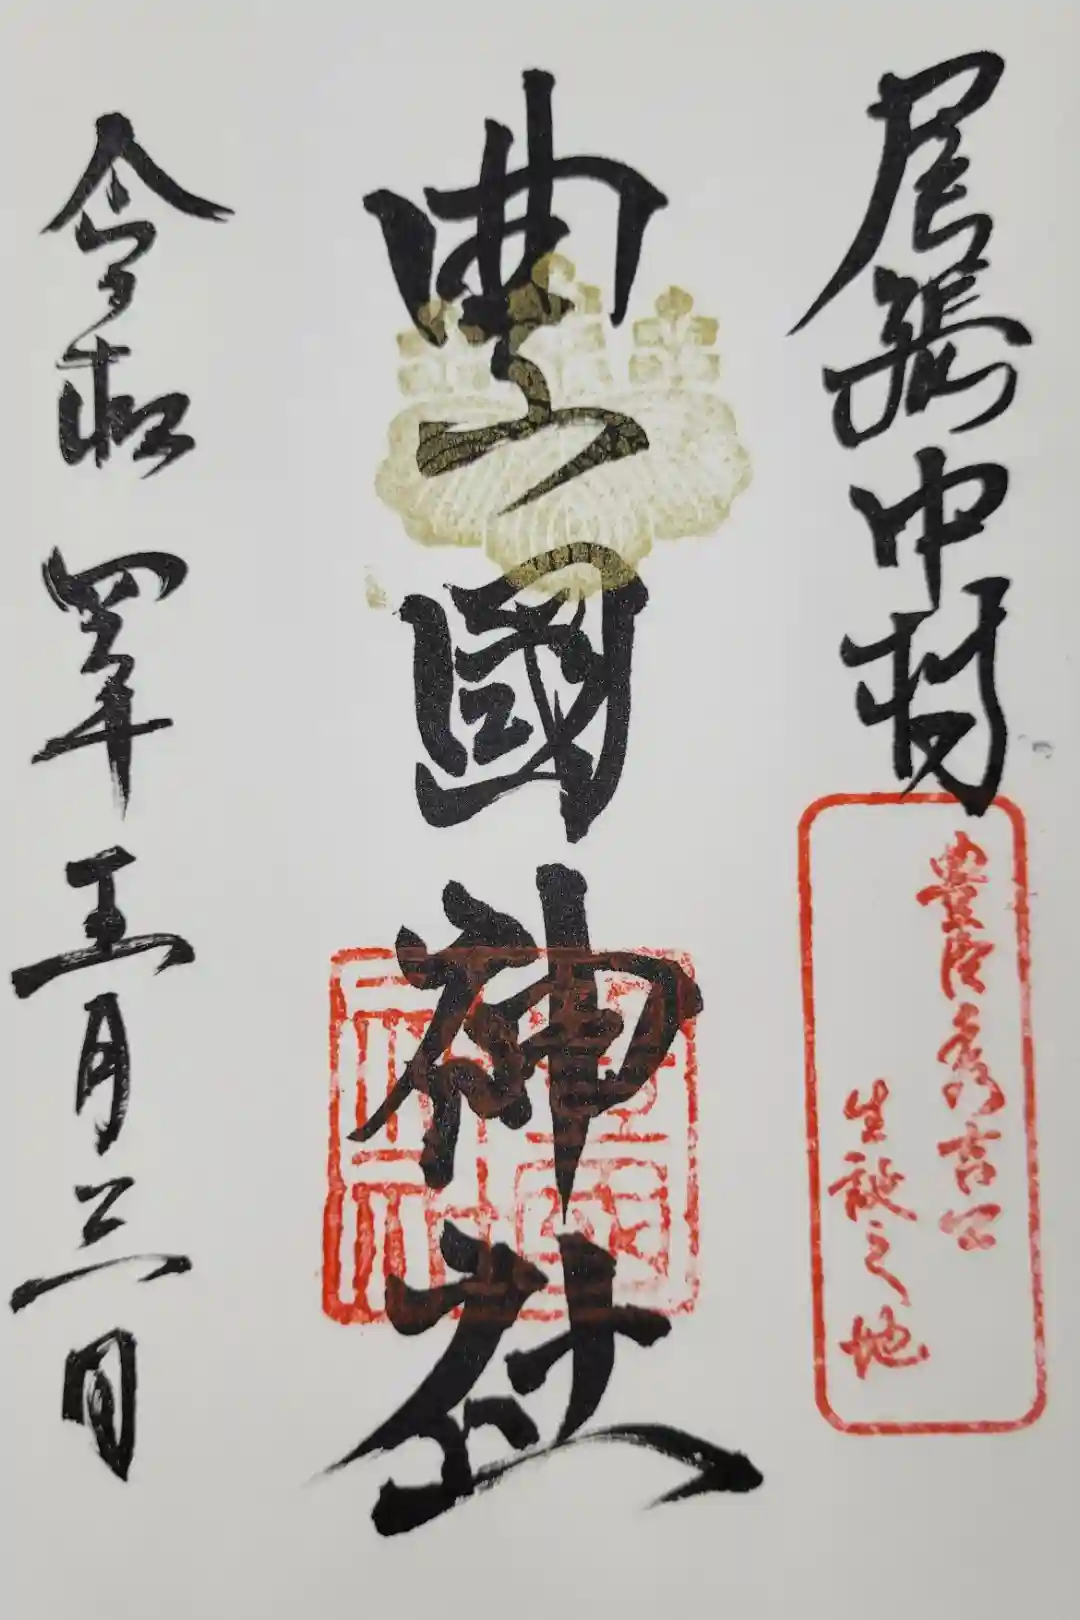 尾張中村
豊臣秀吉公
生誕之地
豊國神社
豊國神社
令和四年五月三日